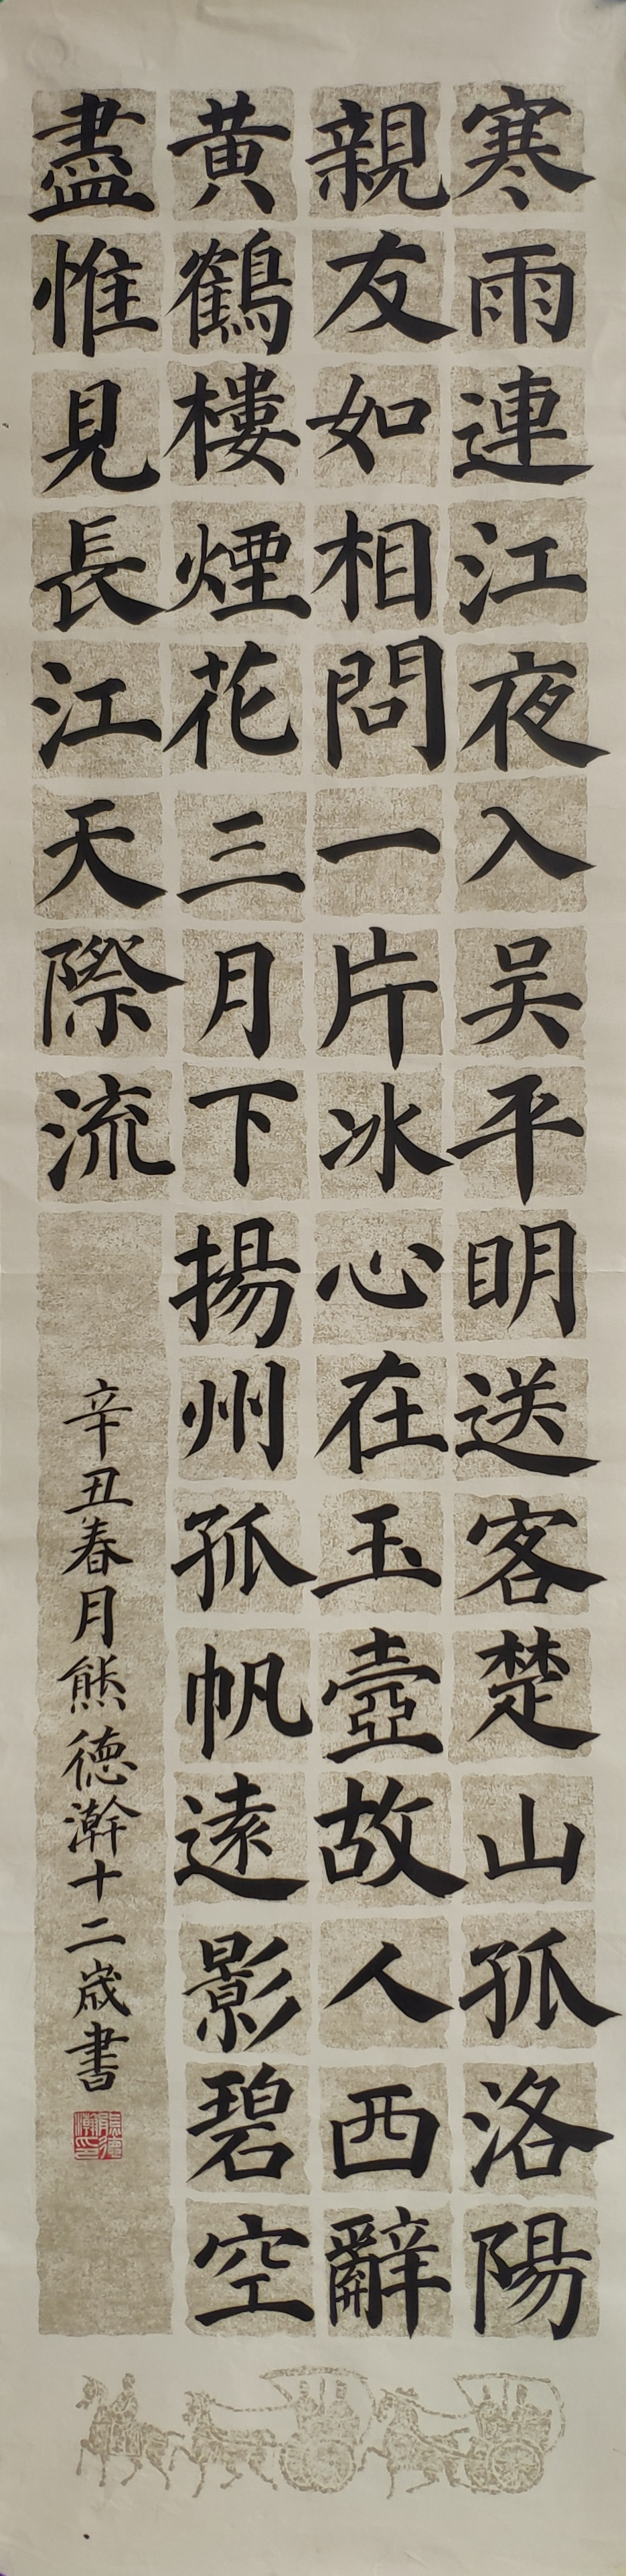 寒雨連江夜入吴平明送客楚山孤洛陽
親友如相問一片冰心在玉壺故人西辭
黄鶴樓煙花三月下揚州孤帆遠影碧空
盡惟見長江天際流
辛丑春月熊德瀚十二歲書